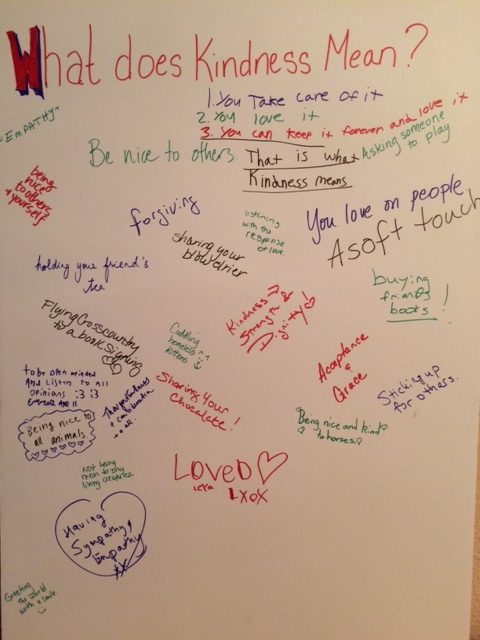 What does Kindness Mean?
1. You Take care of it
2. You love it
3. You can keep it forever and love it
"EMPATHY"
Be nice to others.
That is what
Kindness means
Asking someone
to play
being
nice
to others
+ yourself
forgiving
listening
with the
response
of love.
You love on people
A soft touch
sharing your
blowdrier
holding your friend's
tea
buying
friends
books!
Flying Cross country
to a book signing
Kindness →
Strength &
Dignity
Cuddling
homeless
kittens
Acceptance
&
Grace
to be open minded
And Listen to All
opinions :) :)
Sharing Your
chocolate!
Sticking up
for others.
Being nice to
all animals
Being nice and kind
to horses.
Not being
mean to any
living creatures
LOVED
LxoX
Having
Sympathy &
Empathy
xx
Greeting
the world
with a smile